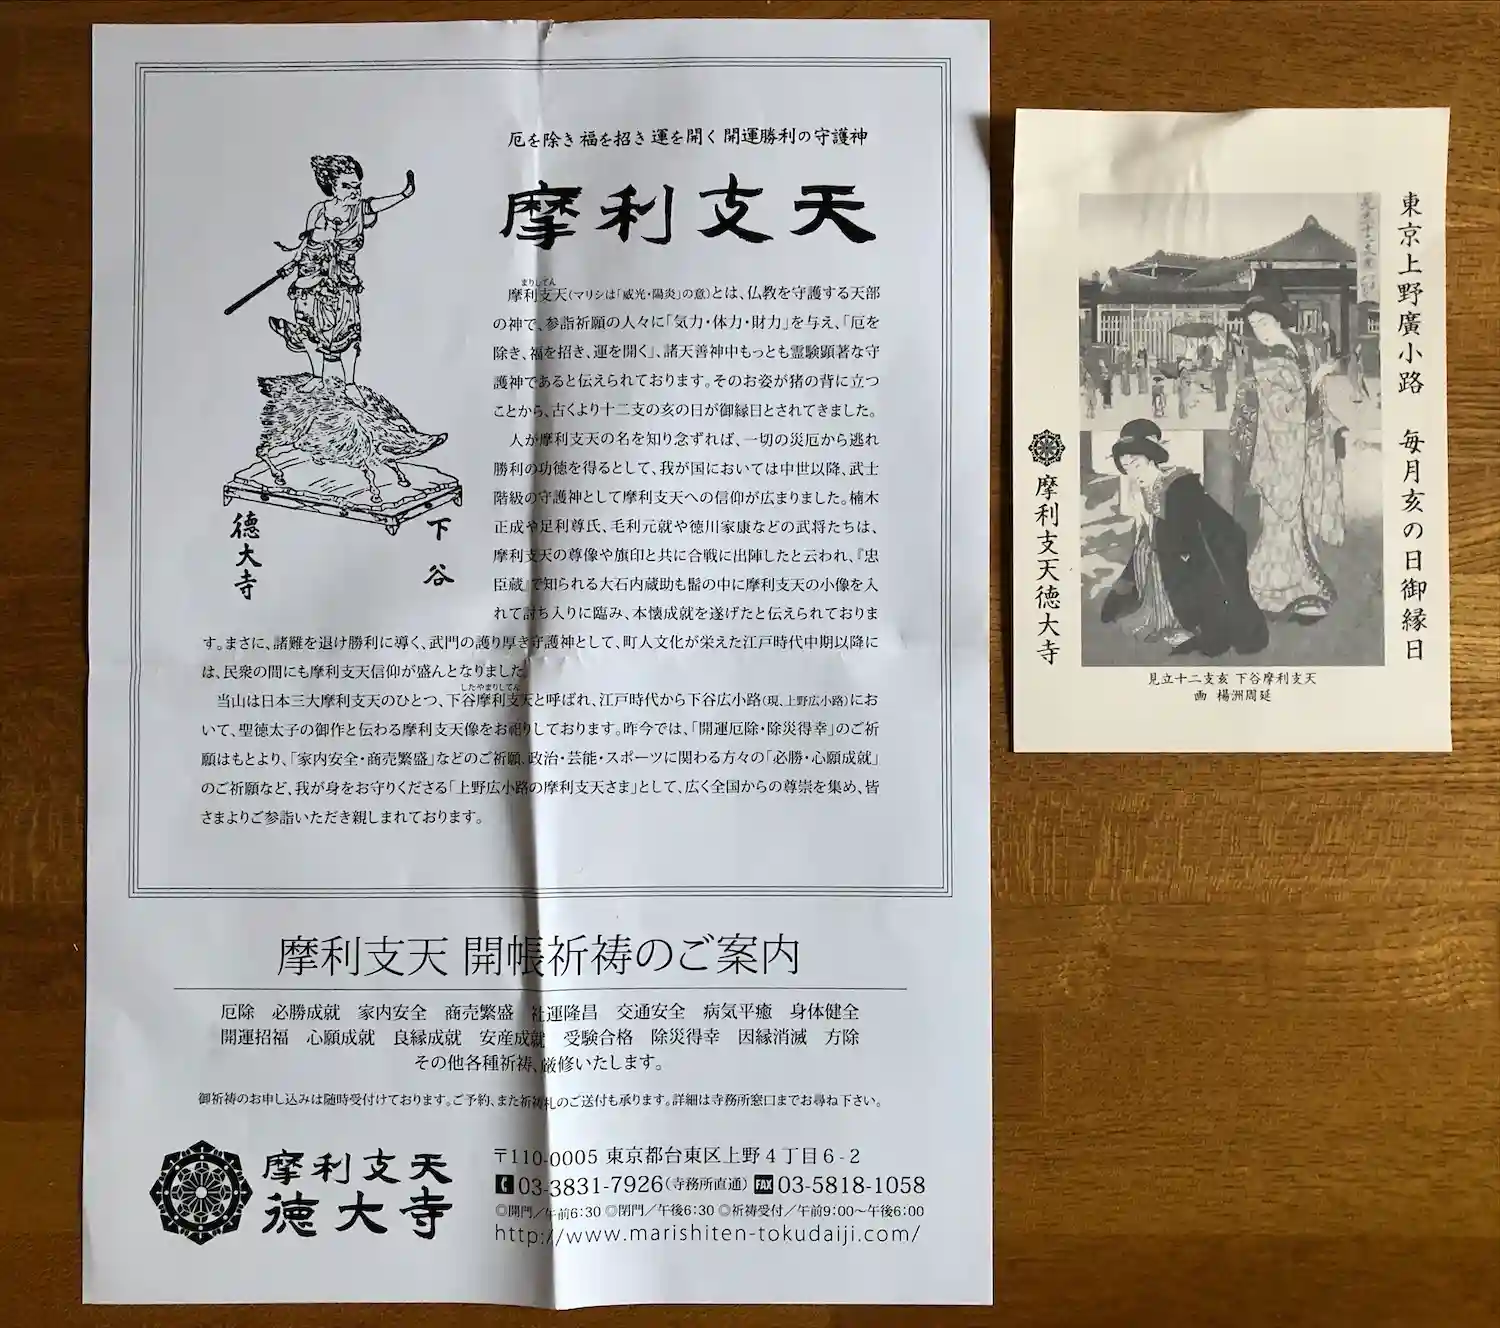 厄を除き 福を招き 運を開く 開運勝利の守護神
摩利支天
まりしてん
摩利支天(マリシは「威光・陽炎」の意)とは、仏教を守護する天部
の神で、参詣祈願の人々に「気力・体力・財力」を与え、「厄を
除き、福を招き、運を開く」、諸天善神中もっとも霊験顕著な守
護神であると伝えられております。そのお姿が猪の背に立つ
ことから、古くより十二支の亥の日が御縁日とされてきました。
人が摩利支天の名を知り念ずれば、一切の災厄から逃れ
勝利の功徳を得るとして、我が国においては中世以降、武士
階級の守護神として摩利支天への信仰が広まりました。楠木
正成や足利尊氏、毛利元就や徳川家康などの武将たちは、
摩利支天の尊像や旗印と共に合戦に出陣したと云われ、『忠
臣蔵』で知られる大石内蔵助も髷の中に摩利支天の小像を入
れて討ち入りに臨み、本懐成就を遂げたと伝えられておりま
す。まさに、諸難を退け勝利に導く、武門の護り厚き守護神として、町人文化が栄えた江戸時代中期以降に
は、民衆の間にも摩利支天信仰が盛んとなりました。
したやまりしてん
当山は日本三大摩利支天のひとつ、下谷摩利支天と呼ばれ、江戸時代から下谷広小路(現、上野広小路)にお
いて、聖徳太子の御作と伝わる摩利支天像をお祀りしております。昨今では、「開運厄除・除災得幸」のご祈
願はもとより、「家内安全・商売繁盛」などのご祈願、政治・芸能・スポーツに関わる方々の「必勝・心願成就」
のご祈願など、我が身をお守りくださる「上野広小路の摩利支天さま」として、広く全国からの尊崇を集め、皆
さまよりご参詣いただき親しまれております。
下谷
徳大寺
摩利支天 開帳祈祷のご案内
厄除 必勝成就 家内安全 商売繁盛 社運隆昌 交通安全 病気平癒 身体健全
開運招福 心願成就 良縁成就 安産成就 受験合格 除災得幸 因縁消滅 方除
その他各種祈祷、厳修いたします。
御祈祷のお申し込みは随時受付けております。ご予約、また祈祷札のご送付も承ります。詳細は寺務所窓口までお尋ね下さい。
摩利支天
徳大寺
〒110-0005 東京都台東区上野4丁目6-2
03-3831-7926(寺務所直通) FAX 03-5818-1058
◎開門/午前6:30 ◎閉門/午後6:30 ◎祈祷受付/午前9:00〜午後6:00
http://www.marishiten-tokudaiji.com/
東京上野廣小路 毎月亥の日御縁日
摩利支天徳大寺
見立十二支亥 下谷摩利支天
画 楊洲周延